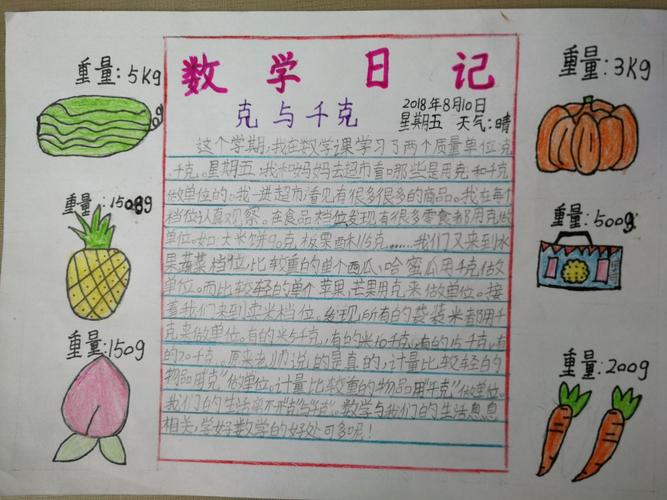 数学日记
克与千克
2018年8月10日
星期五 天气:晴
这个学期,我在数学课学习了两个质量单位克
、千克。星期五,我和妈妈去超市看哪些是用克和千克
做单位的。我一进超市,看见有很多很多的商品。我在每个
档位认真观察。在食品档位发现有很多零食都用克做
单位。如:大米饼90克,板栗酥115克……我们又来到水
果蔬菜档位,比较重的单个西瓜、哈蜜瓜用千克做
单位。而比较轻的单个苹果,芒果用克来做单位。接
着我们来到卖米档位。发现所有的袋装米都用千
克来做单位。有的米5千克,有的米10千克,有的15千克,有
的20千克。原来老师说的是真的,计量比较轻的
物品用"克"做单位。计量比较重的物品用"千克"做单位。
我们的生活离不开"克"与"千克"。数学与我们的生活息息
相关,学好数学的好处可多呢!
重量:5Kg
重量:1500g
重量:150g
重量:3Kg
重量:500g
重量:200g